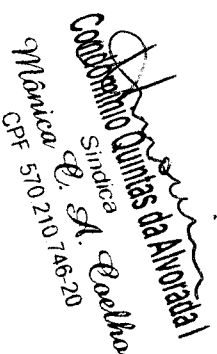 Condomínio Quintas da Alvorada I
Síndica
Mônica C. A. Coelho
CPF 570.210.746-20